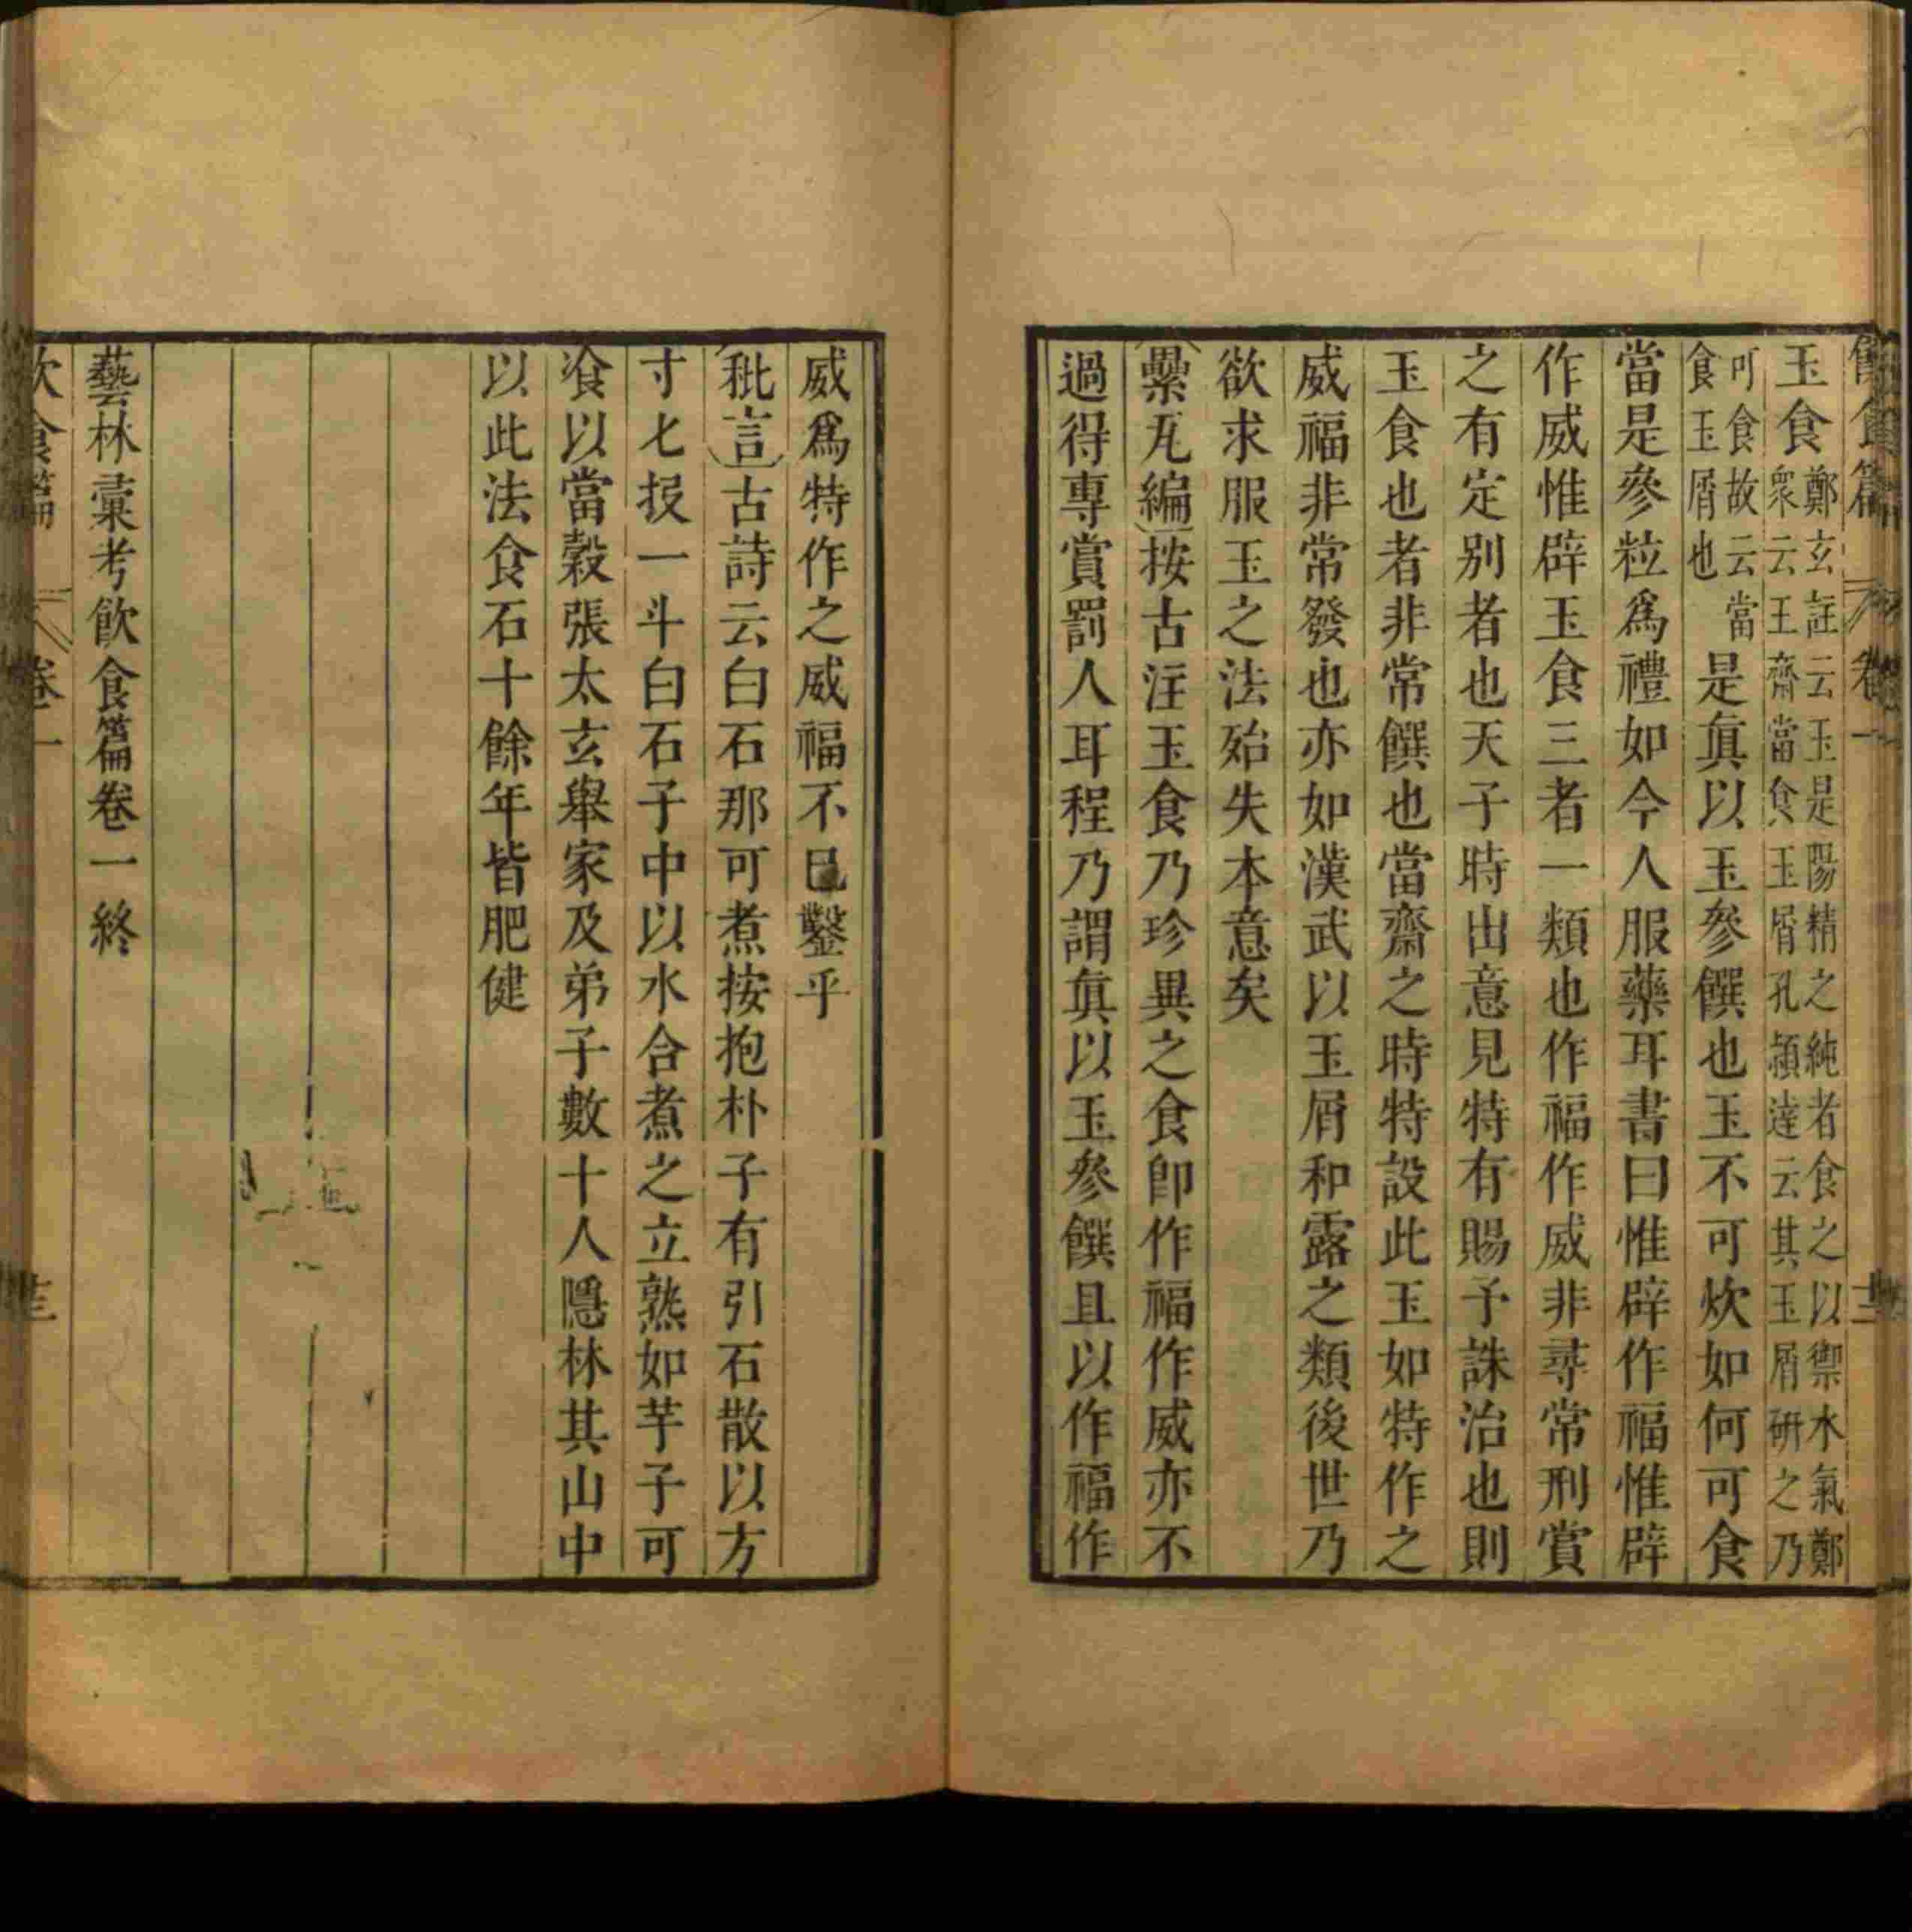 飲食篇 卷一 十三
玉食鄭玄註云玉是陽精之純者食之以禦水氣鄭
眾云王齋當食玉屑孔穎達云其玉屑研之乃
可食故云當
食玉屑也 是眞以玉參饌也玉不可炊如何可食
當是參粒爲禮如今人服藥耳書曰惟辟作福惟辟
作威惟辟玉食三者一類也作福作威非尋常刑賞
之有定別者也天子時出意見特有賜予誅治也則
玉食也者非常饌也當齋之時特設此玉如特作之
威福非常發也亦如漢武以玉屑和露之類後世乃
欲求服玉之法殆失本意矣
纍瓦編按古注玉食乃珍異之食卽作福作威亦不
過得專賞罰人耳程乃謂眞以玉參饌且以作福作
威爲特作之威福不已鑿乎
秕言古詩云白石那可煮按抱朴子有引石散以方
寸七投一斗白石子中以水合煮之立熟如芋子可
飡以當穀張太玄舉家及弟子數十人隱林其山中
以此法食石十餘年皆肥健
藝林彙考飲食篇卷一終
飲食篇 卷一